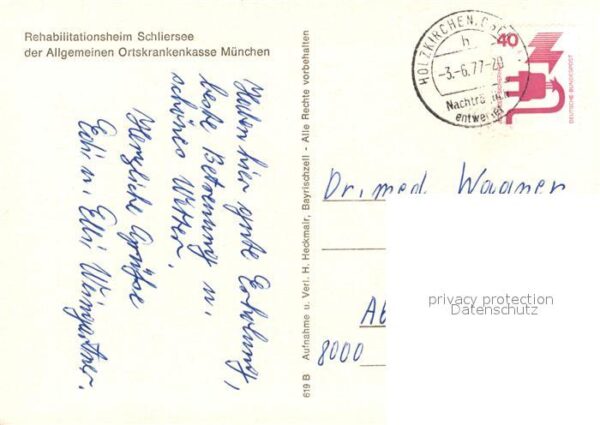 Rehabilitationsheim Schliersee
der Allgemeinen Ortskrankenkasse München
Haben hier gute Erholung,
beste Betreuung u.
schönes Wetter.
Herzliche Grüße
Edi u. Elli Weingartner.
619 B Aufnahme u. Verl. H. Heckmair, Bayrischzell - Alle Rechte vorbehalten
HOLZKIRCHEN
h
-3.-6.77-20
entwerte
40
DEUTSCHE BUNDESPOST
Dr. med. Wagner
8000
privacy protection
Datenschutz